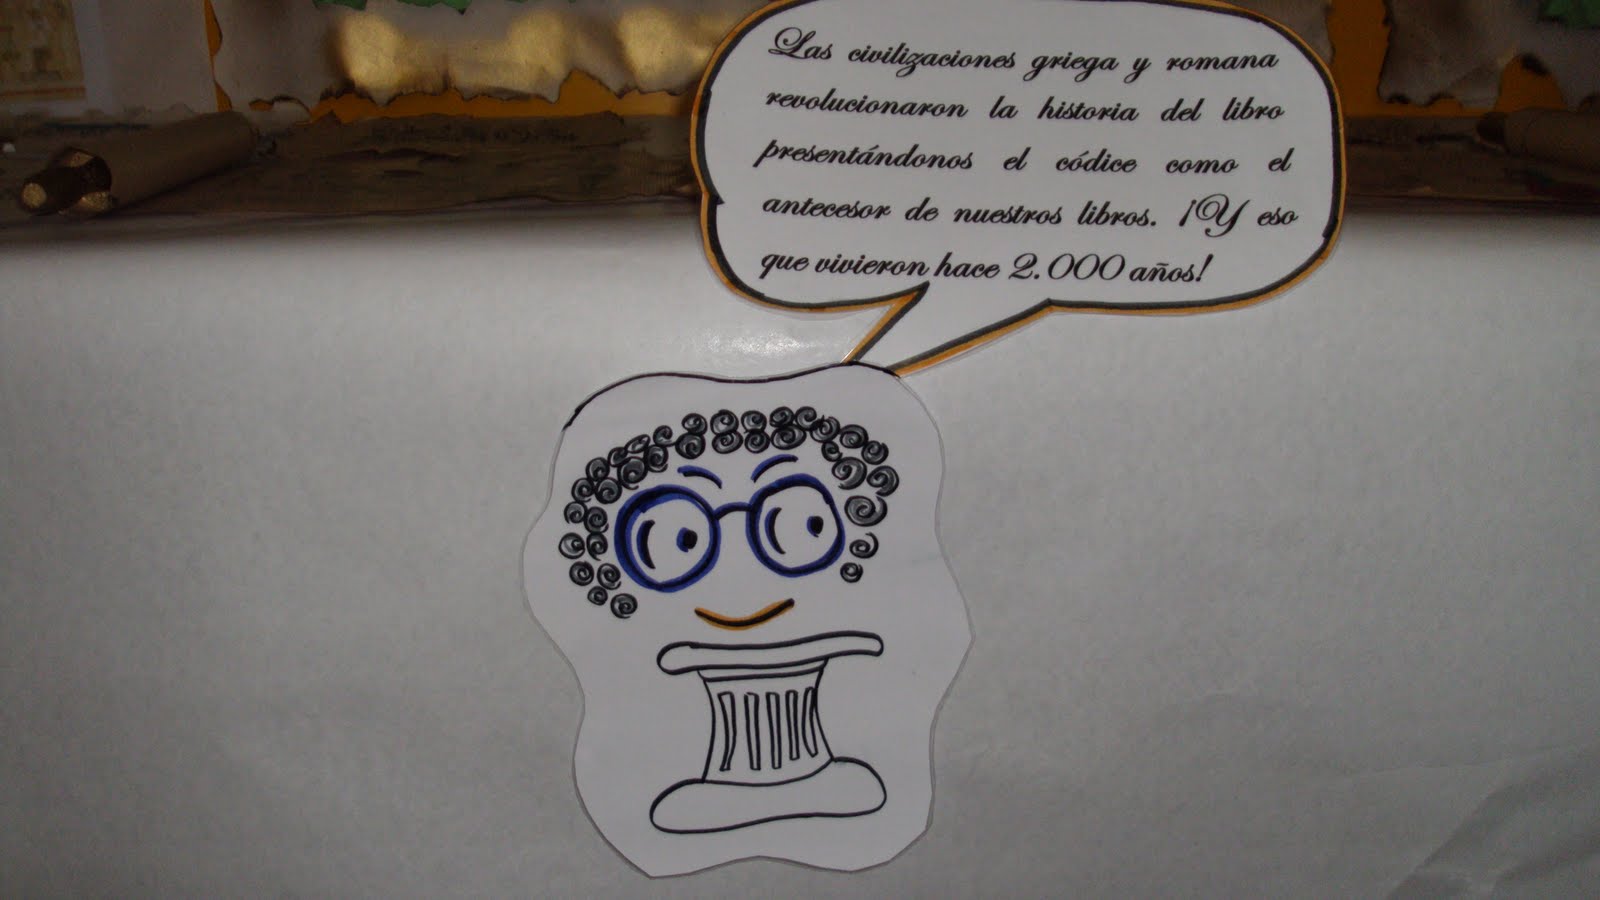 Las civilizaciones griega y romana
revolucionaron la historia del libro
presentándonos el códice como el
antecesor de nuestros libros. ¡Y eso
que vivieron hace 2.000 años!